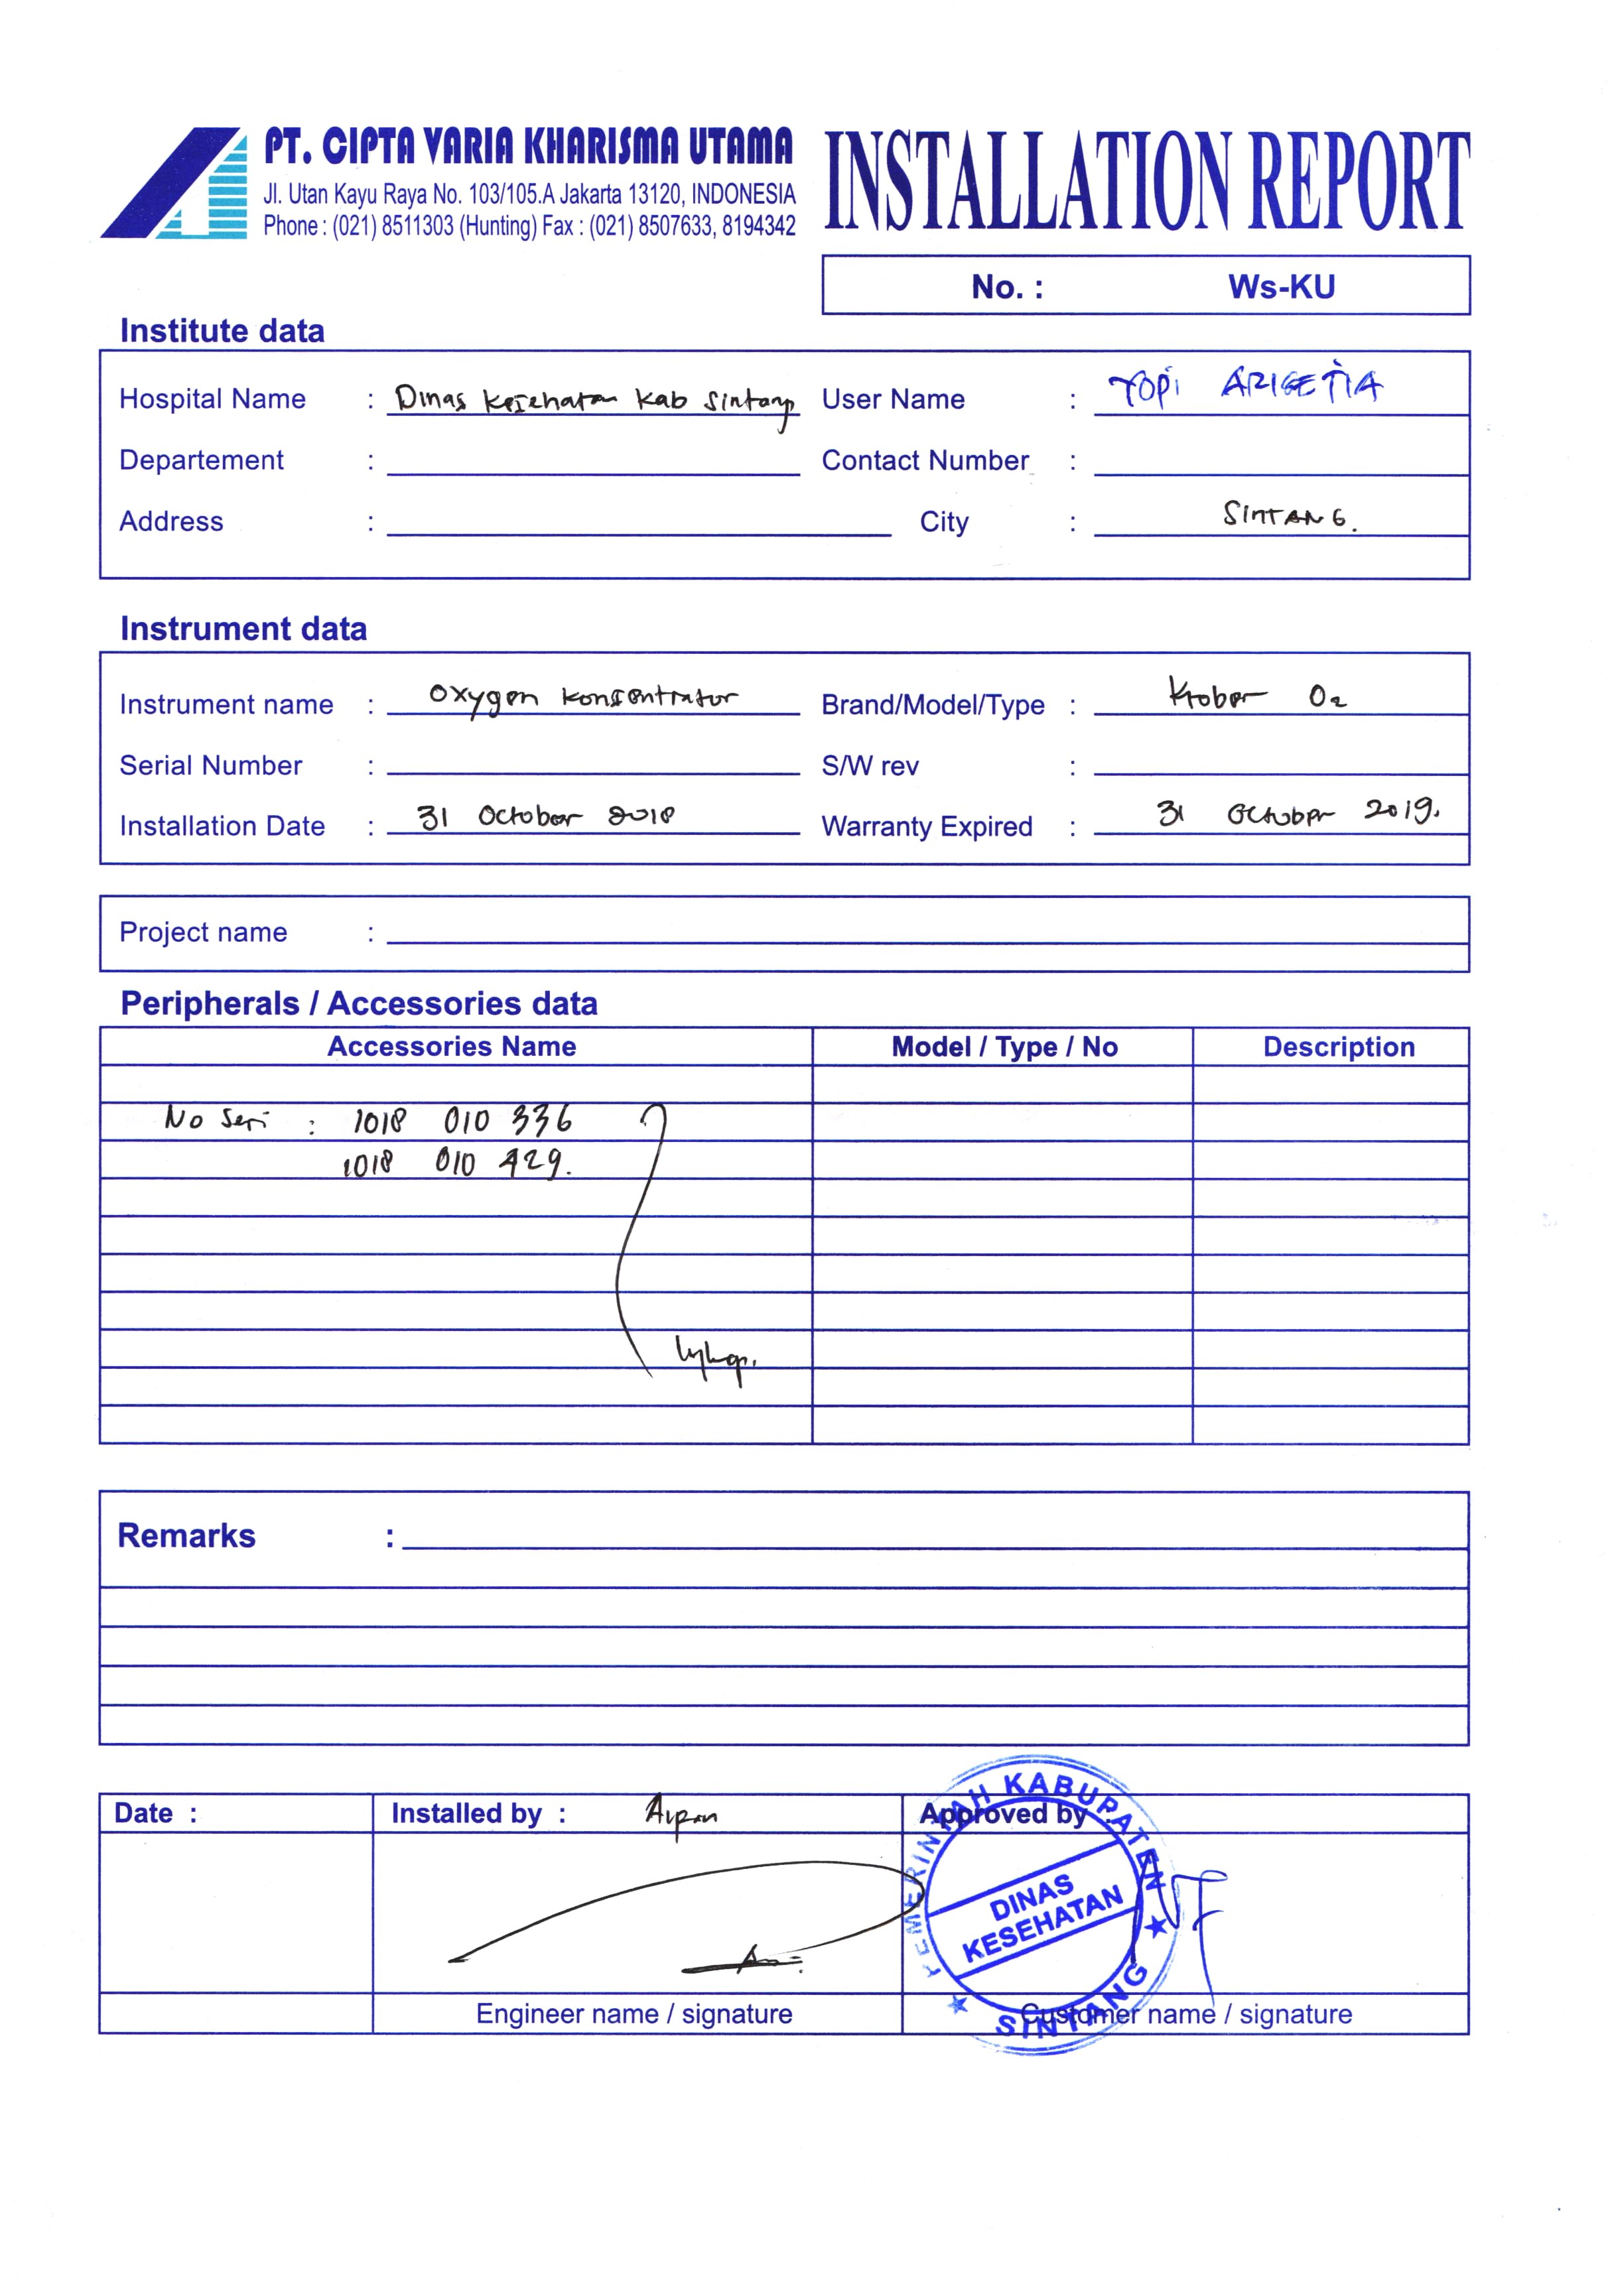 PT. CIPTA VARIA KHARISMA UTAMA
Jl. Utan Kayu Raya No. 103/105.A Jakarta 13120, INDONESIA
Phone : (021) 8511303 (Hunting) Fax : (021) 8507633, 8194342
INSTALLATION REPORT
No. : Ws-KU
Institute data
Hospital Name : Dinas Kesehatan Kab Sintang User Name : YOPi ARIGETIA
Departement : Contact Number :
Address : City : SINTANG.
Instrument data
Instrument name : Oxygen Konsentrator Brand/Model/Type : Krober O2
Serial Number : S/W rev :
Installation Date : 31 October 2018 Warranty Expired : 31 October 2019.
Project name :
Peripherals / Accessories data
Accessories Name Model / Type / No Description
No Seri : 1018 010 336
1018 010 429.
Remarks :
Date : Installed by : Arpan Approved by
PEMERINTAH KABUPATEN
DINAS
KESEHATAN
SINTANG
Engineer name / signature Customer name / signature